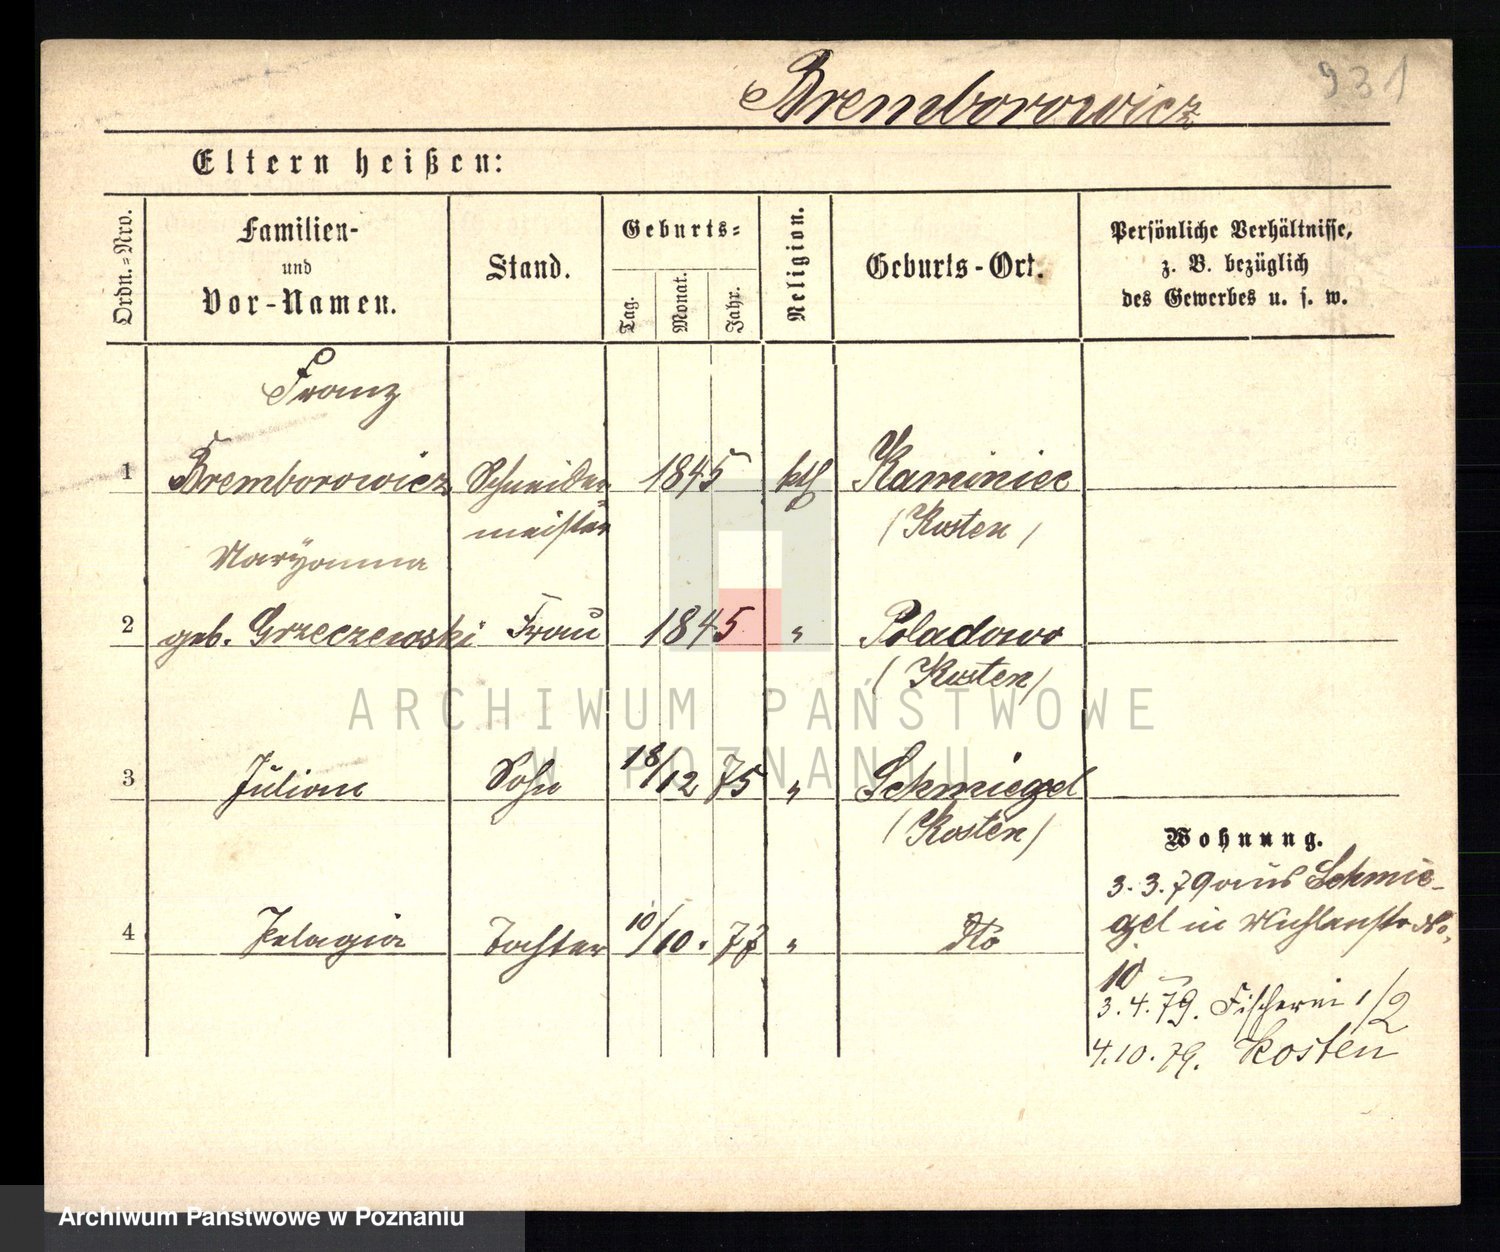 931
Bremborowicz
Eltern heißen:
Ordn.=Nro.
Familien-
und
Vor-Namen.
Stand.
Geburts=
Tag.
Monat.
Jahr.
Religion.
Geburts-Ort.
Persönliche Verhältnisse,
z. B. bezüglich
des Gewerbes u. s. w.
Franz
1 Bremborowicz Schneider= 1845 kth Kaminiec
meister (Kosten)
Maryanna
2 geb. Grzeczewski Frau 1845 " Poladowo
(Kosten)
3 Julian Sohn 18/12 75 " Schmiegel
(Kosten)
Wohnung.
3.3.79 aus Schmie-
4 Pelagia Tochter 10/10. 77 " dto
gel in Mühlenstr. No.
10
3.4.79. Fischerei 1/2
4.10.79. Kosten
ARCHIWUM PAŃSTWOWE
W POZNANIU
Archiwum Państwowe w Poznaniu